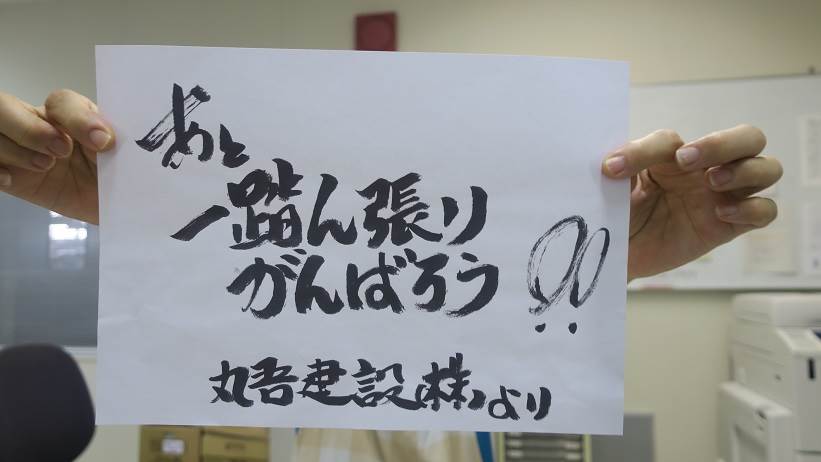 あと
一踏ん張り
がんばろう!!
丸吾建設(株)より